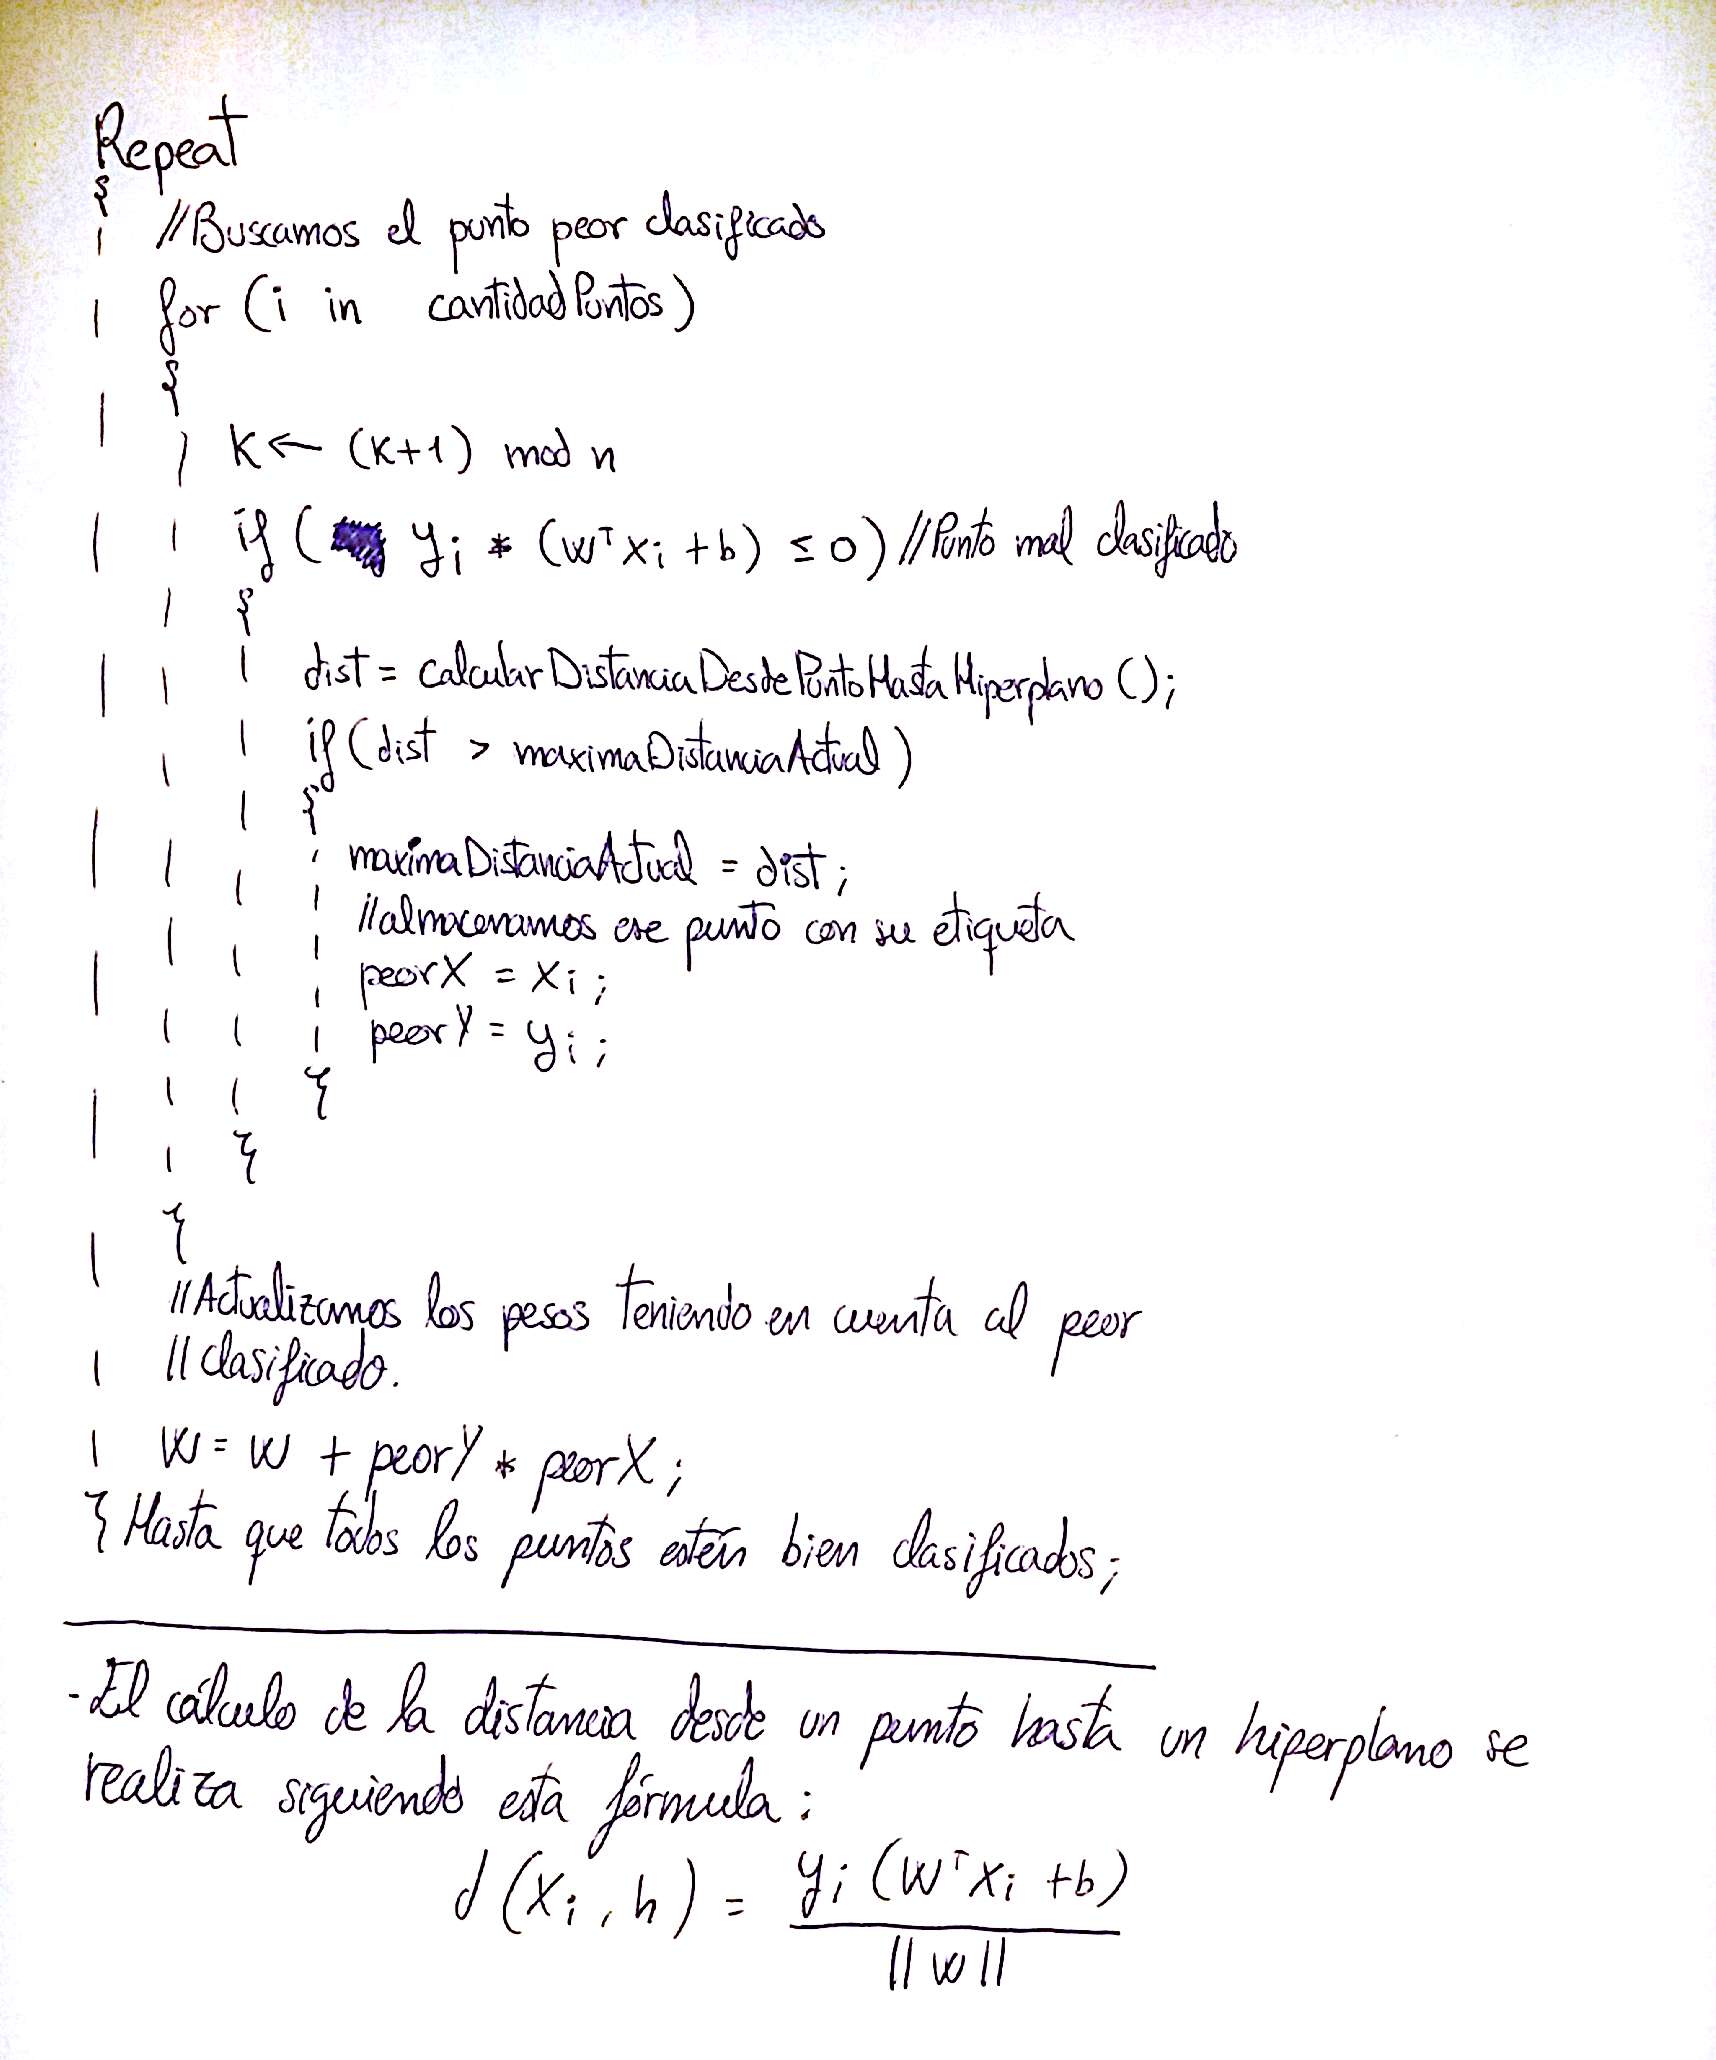 Repeat
{
//Buscamos el punto peor clasificado
for (i in cantidadPuntos)
{
K ← (K+1) mod n
if ( yi * (wᵀxi + b) ≤ 0) //Punto mal clasificado
{
dist = calcularDistanciaDesdePuntoHastaHiperplano ();
if (dist > maximaDistanciaActual)
{
maximaDistanciaActual = dist;
//almacenamos ese punto con su etiqueta
peorX = xi;
peorY = yi;
}
}
}
//Actualizamos los pesos teniendo en cuenta al peor
//clasificado.
W = w + peorY * peorX;
} Hasta que todos los puntos estén bien clasificados;
-El cálculo de la distancia desde un punto hasta un hiperplano se
realiza siguiendo esta fórmula:
d(xi, h) = yi (wᵀxi + b)
||w||